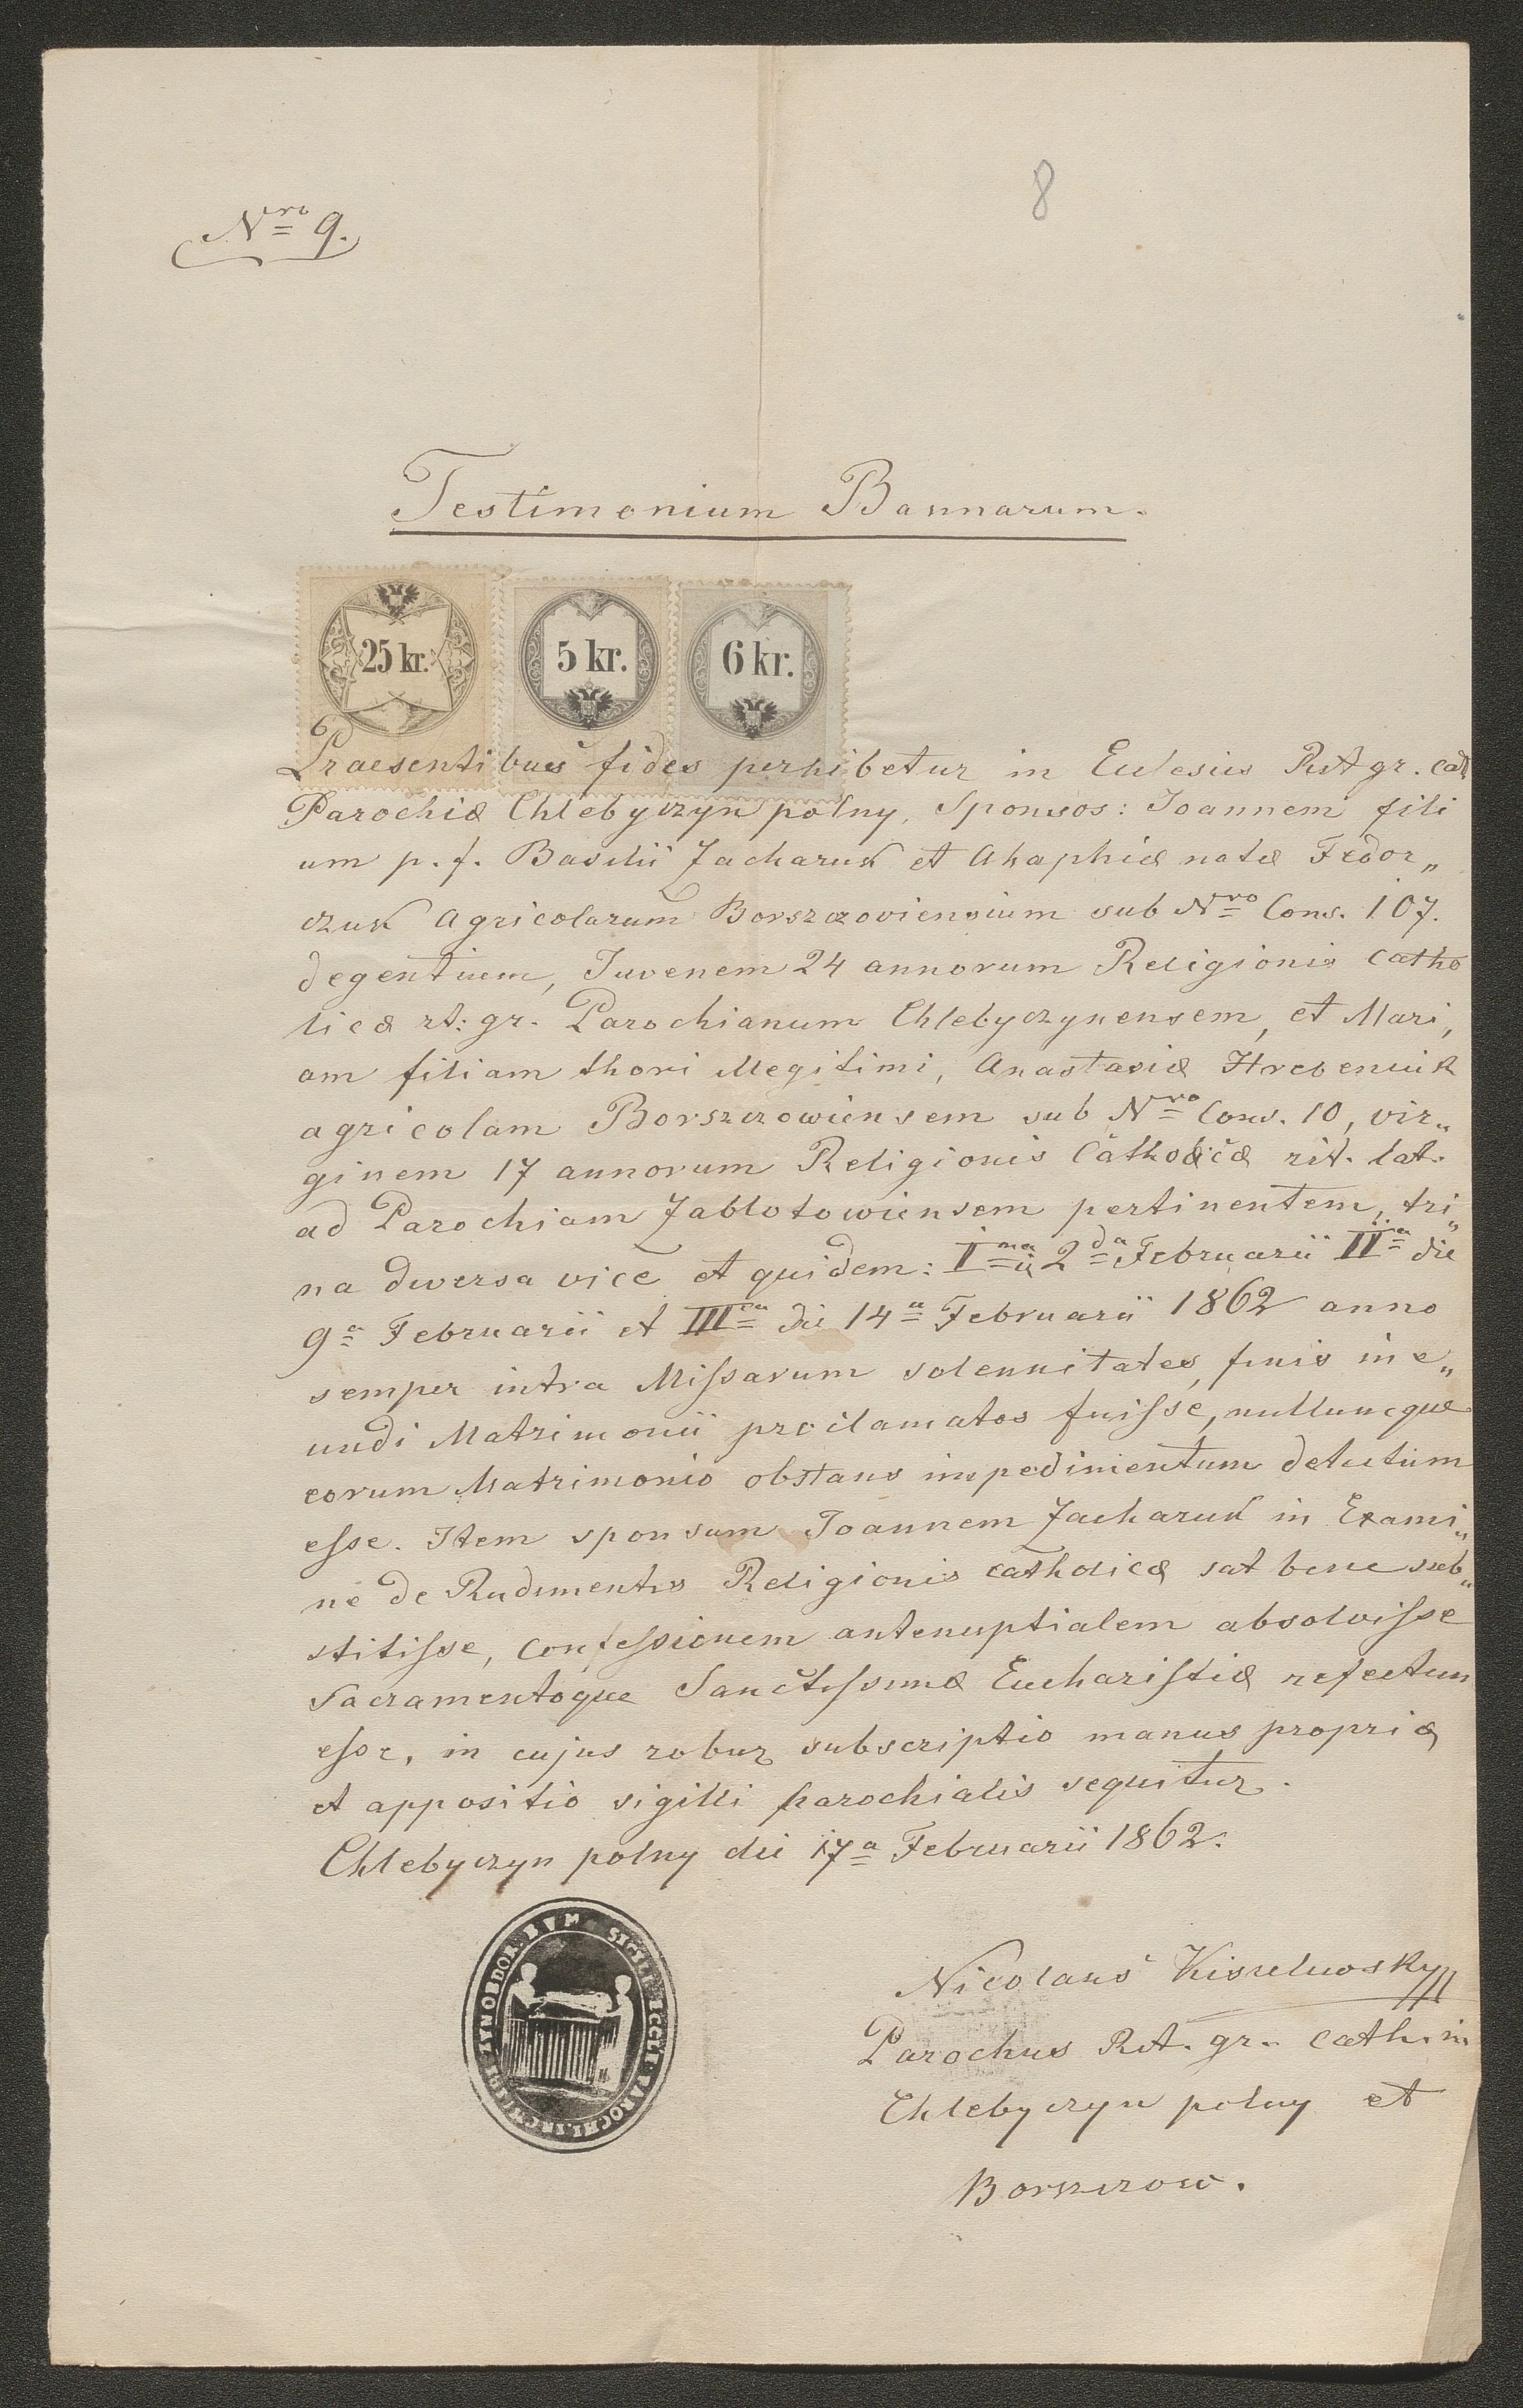 8
Nro 9.
Testimonium Bannarum.
25 kr. 5 kr. 6 kr.
Praesentibus fides perhibetur in Eclesiis Rit gr. cat.
Parochiæ Chlebyczyn polny, Sponsos: Joannem fili
um p. f. Basilii Zacharuk et Ahaphiæ natæ Fedor„
czuk Agricolarum Borszczoviensium sub Nro Cons. 107.
degentium, Juvenem 24 annorum Religionis Catho
licæ rt: gr. Parochianum Chlebyczynensem, et Mari„
am filiam thori illegitimi, Anastasiæ Hrebeniuk
agricolam Borszczowiensem sub Nro Cons. 10, vir„
ginem 17 annorum Religionis Catholicæ rit. lat.
ad Parochiam Zablotowiensem pertinentem, tri„
na diversa vice et quidem: Ima 2da Februarii IIa die
9a Februarii et IIIa die 14a Februarii 1862 anno
semper intra Missarum solennitates, finis ine„
undi Matrimonii proclamatos fuisse, nullumque
eorum Matrimonio obstans impedimentum detectum
esse. Item sponsum Joannem Zacharuk in Exami„
ne de Rudimentis Religionis catholicæ sat bene sub„
stitisse, Confessionem antenuptialem absolvisse
Sacramentoque Sanctissimæ Eucharistiæ refectum
esse, in cujus robur subscriptio manus propriæ
et appositio sigilli parochialis sequitur.
Chlebyczyn polny die 17a Februarii 1862.
SIGIL ECCL PAROCH
Nicolaus Kisselewsky
Parochus Rit. gr. cath. in
Chlebyczyn polny et
Borszczow.